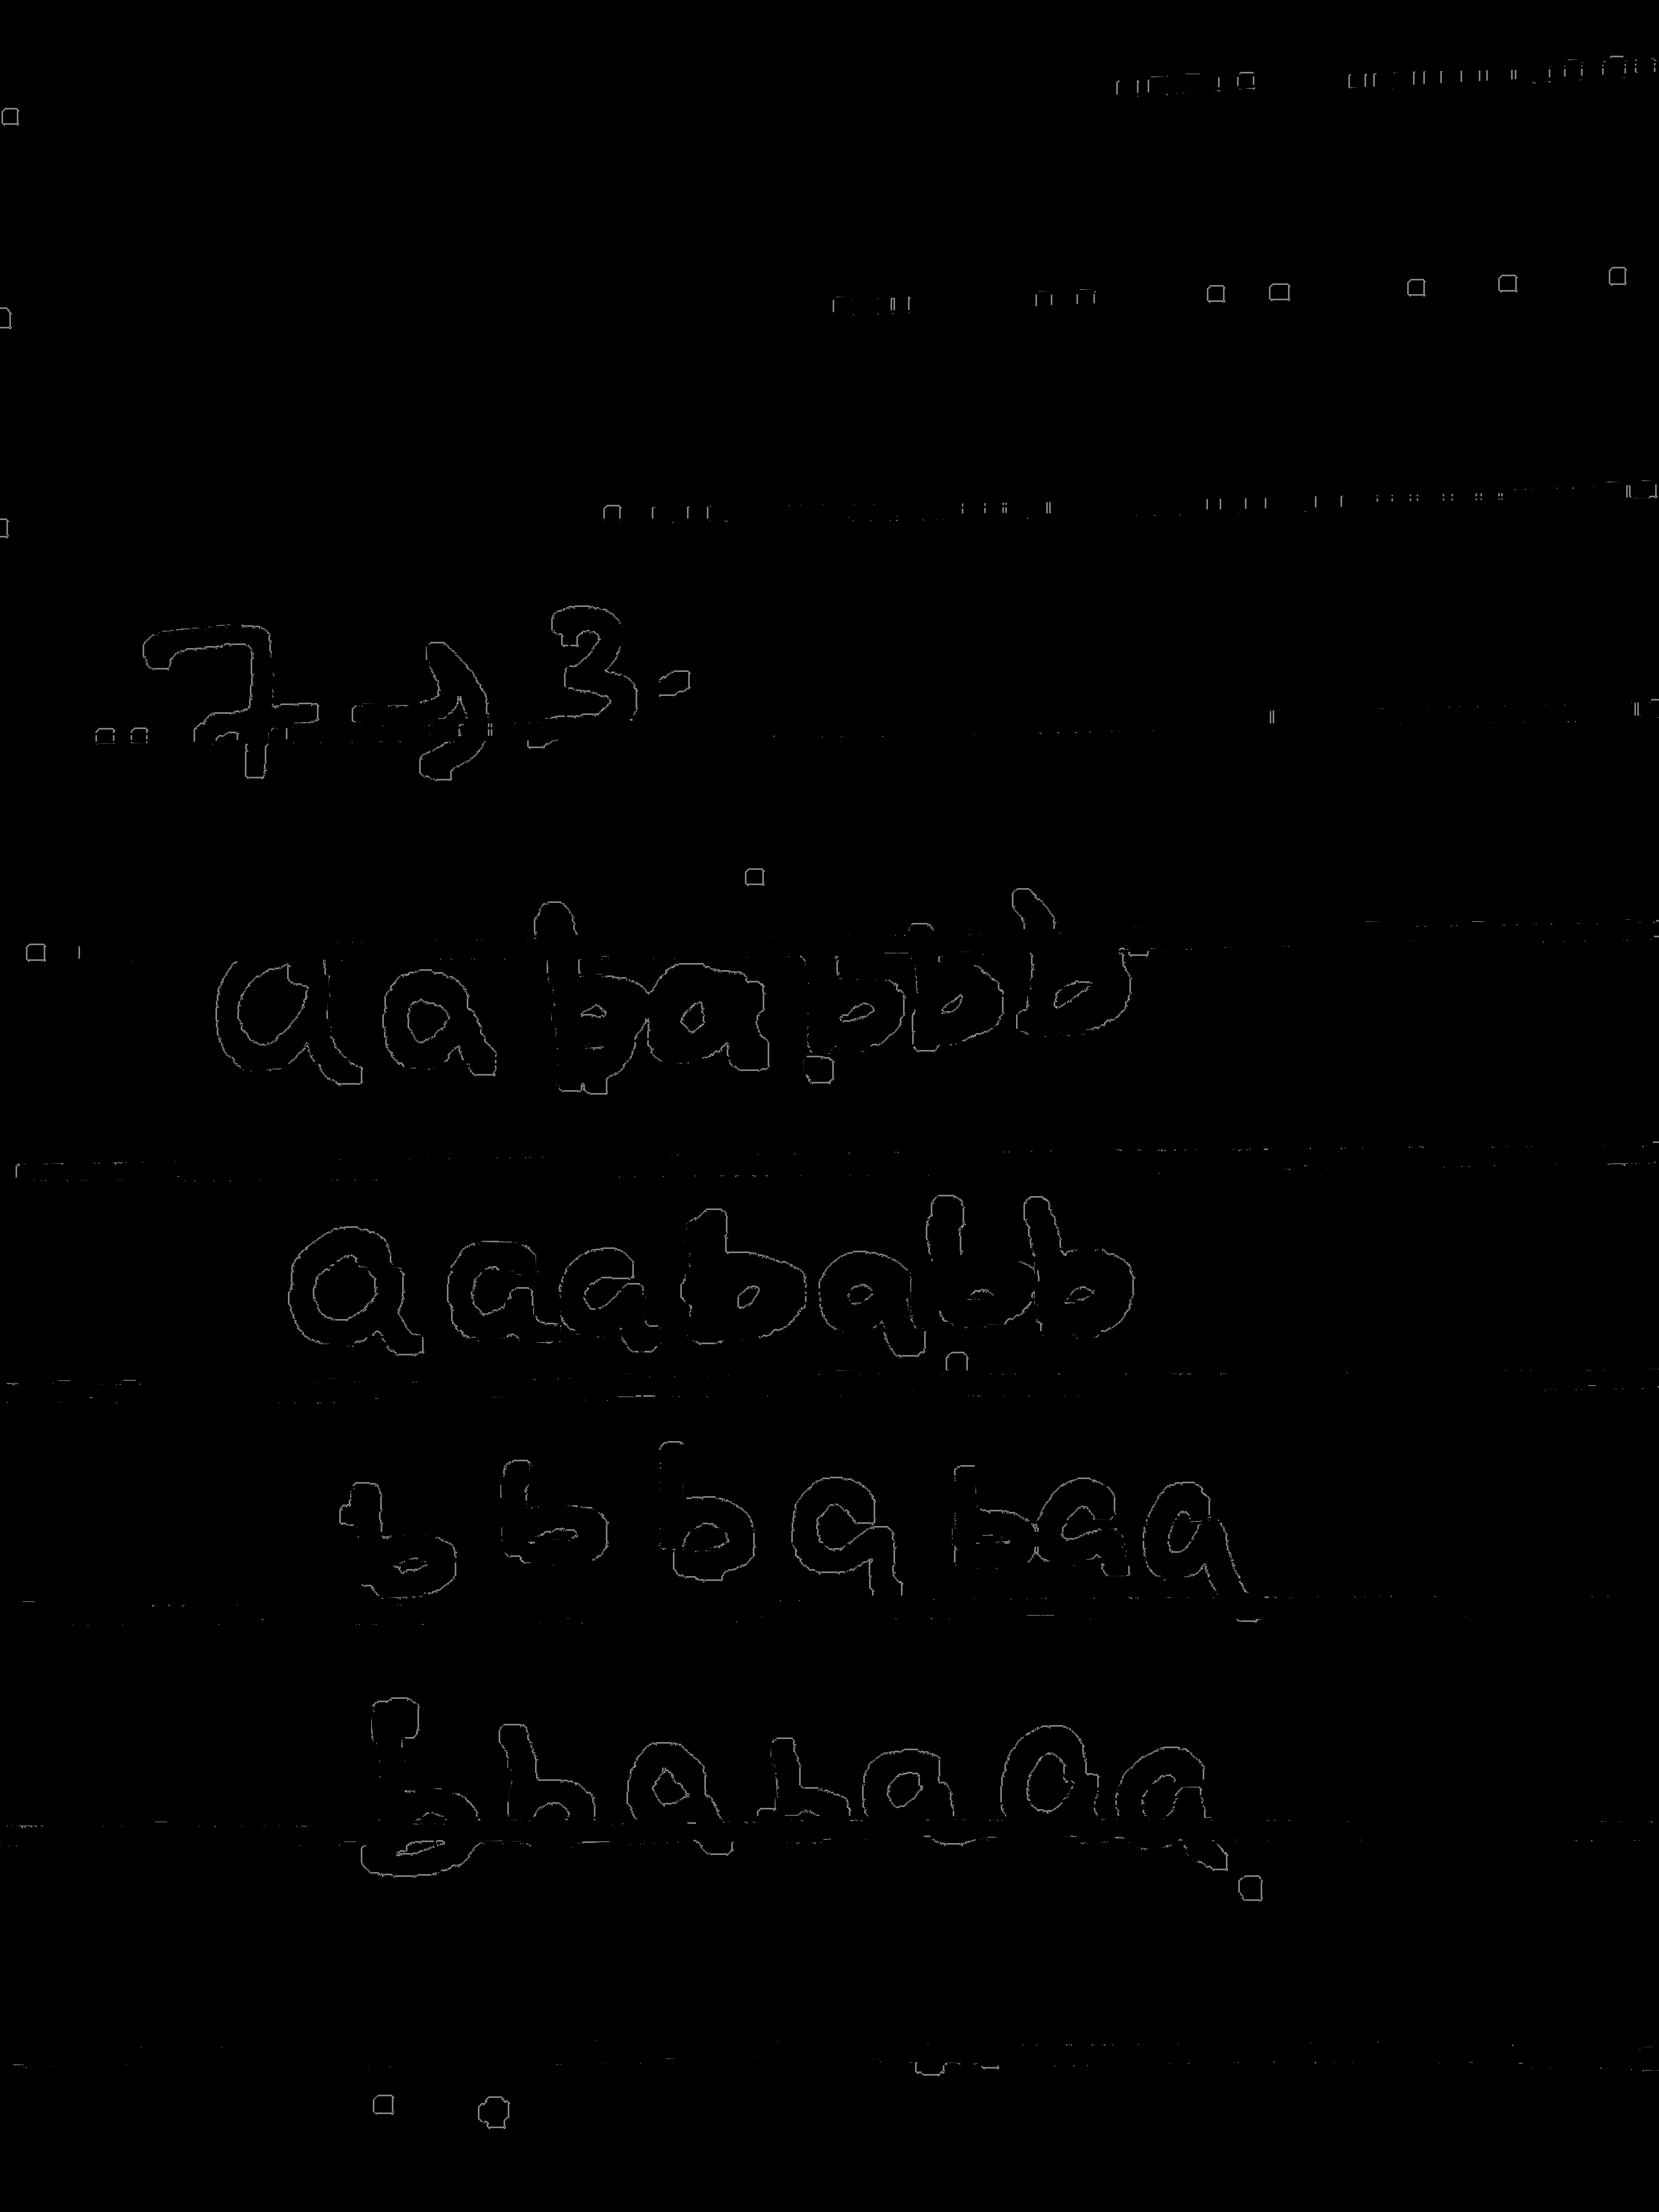 7 → 3.
aababbb
aaababb
bbbabaa
bbabaaa